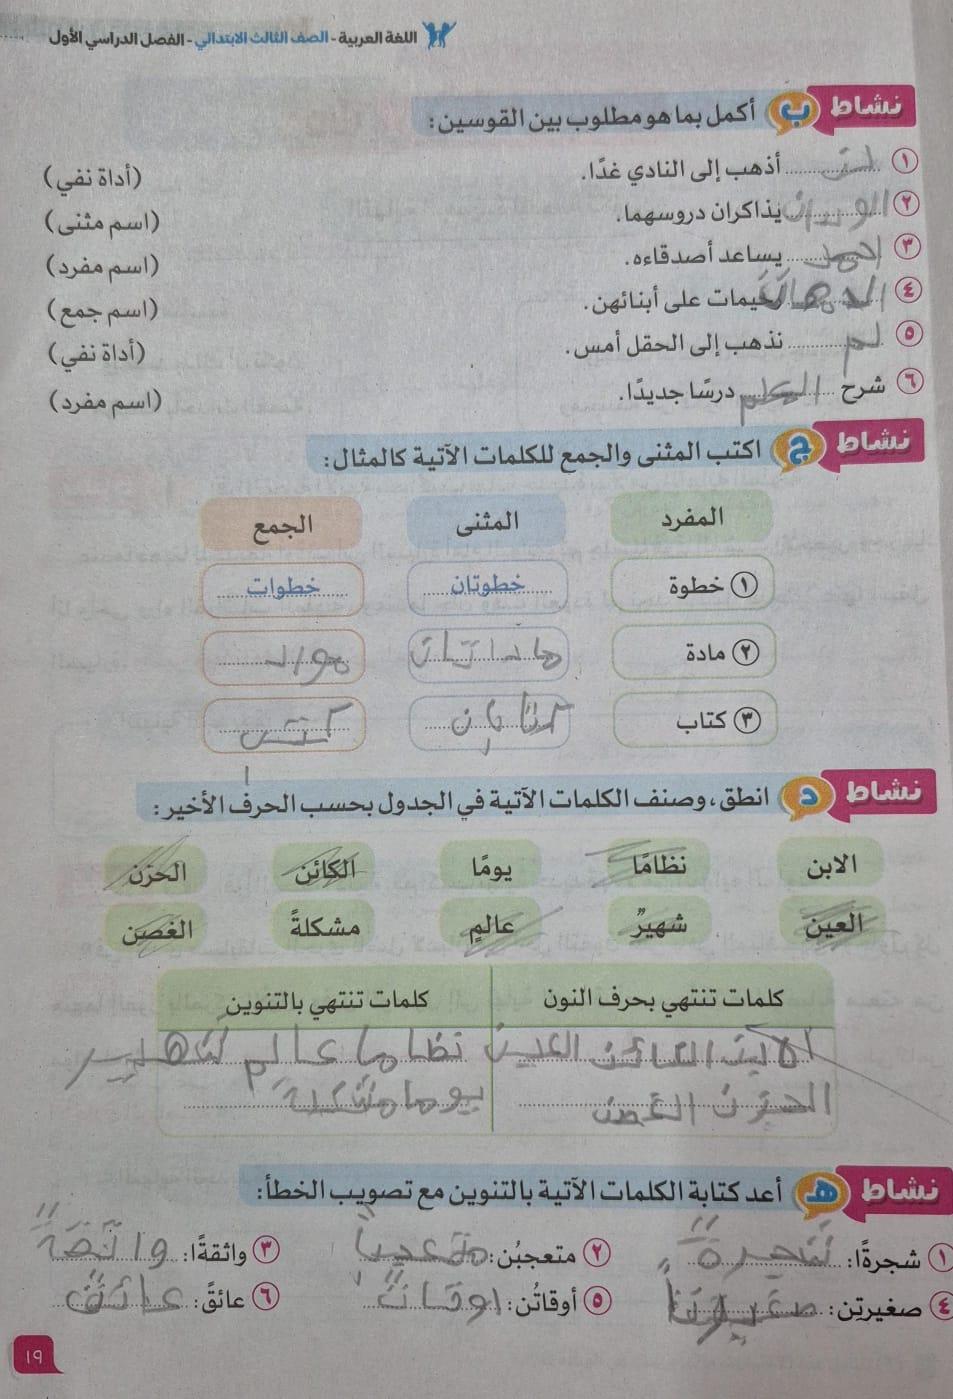 اللغة العربية - الصف الثالث الابتدائي - الفصل الدراسي الأول
نشاط ب أكمل بما هو مطلوب بين القوسين:
١ لن أذهب إلى النادي غدًا. (أداة نفي)
٢ الولدان يذاكران دروسهما. (اسم مثنى)
٣ احمد يساعد أصدقاءه. (اسم مفرد)
٤ رحيمات على أبنائهن. (اسم جمع)
٥ لم نذهب إلى الحقل أمس. (أداة نفي)
٦ شرح المعلم درسًا جديدًا. (اسم مفرد)
نشاط ج اكتب المثنى والجمع للكلمات الآتية كالمثال:
المفرد المثنى الجمع
١ خطوة خطوتان خطوات
٢ مادة مادتان مواد
٣ كتاب كتابان كتب
نشاط د انطق، وصنف الكلمات الآتية في الجدول بحسب الحرف الأخير:
الابن نظامًا يومًا الكائن الحزن
العين شهيرٌ عالمٍ مشكلةً الغصن
كلمات تنتهي بحرف النون كلمات تنتهي بالتنوين
الابن الكائن العين نظاما عالم شهير
الحزن الغصن يوما مشكلة
نشاط هـ أعد كتابة الكلمات الآتية بالتنوين مع تصويب الخطأ:
١ شجرةًا: شجرةً ٢ متعجبُن: متعجباً ٣ واثقةًا: واثقةً
٤ صغيرتِن: ٥ أوقاتُن: اوقاتً ٦ عائقً: عائقً
١٩